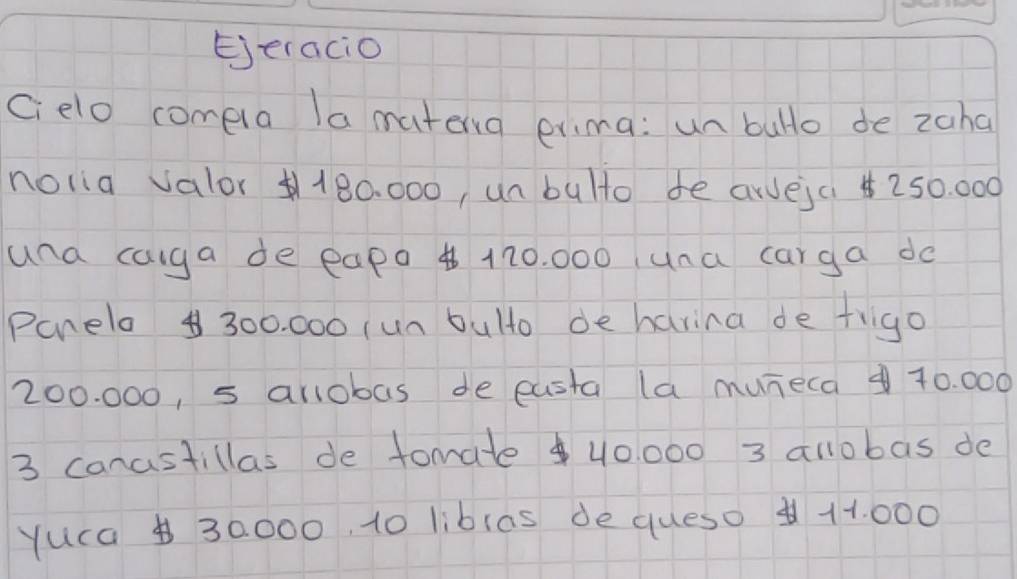 Ejercicio
Cielo compra la materia prima: un bulto de zaha
noria valor $ 180.000, un bulto de arveja $ 250.000
una carga de papa $ 120.000, una carga de
Panela $ 300.000, un bulto de harina de trigo
200.000, 5 arrobas de pasta la muñeca $ 70.000
3 canastillas de tomate $ 40.000 3 arrobas de
yuca $ 30.000, 10 libras de queso $ 11.000